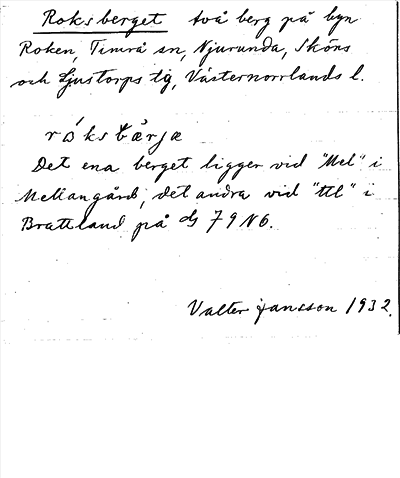 Roksberget två berg på byn
Roken, Timrå sn, Njurunda, Sköns
och Ljustorps tg, Västernorrlands l.
róksbærjæ
Det ena berget ligger vid "Mel" i
Mellangård, det andra vid "ttl" i
Brattland på 79 N6.
Valter Jansson 1932.